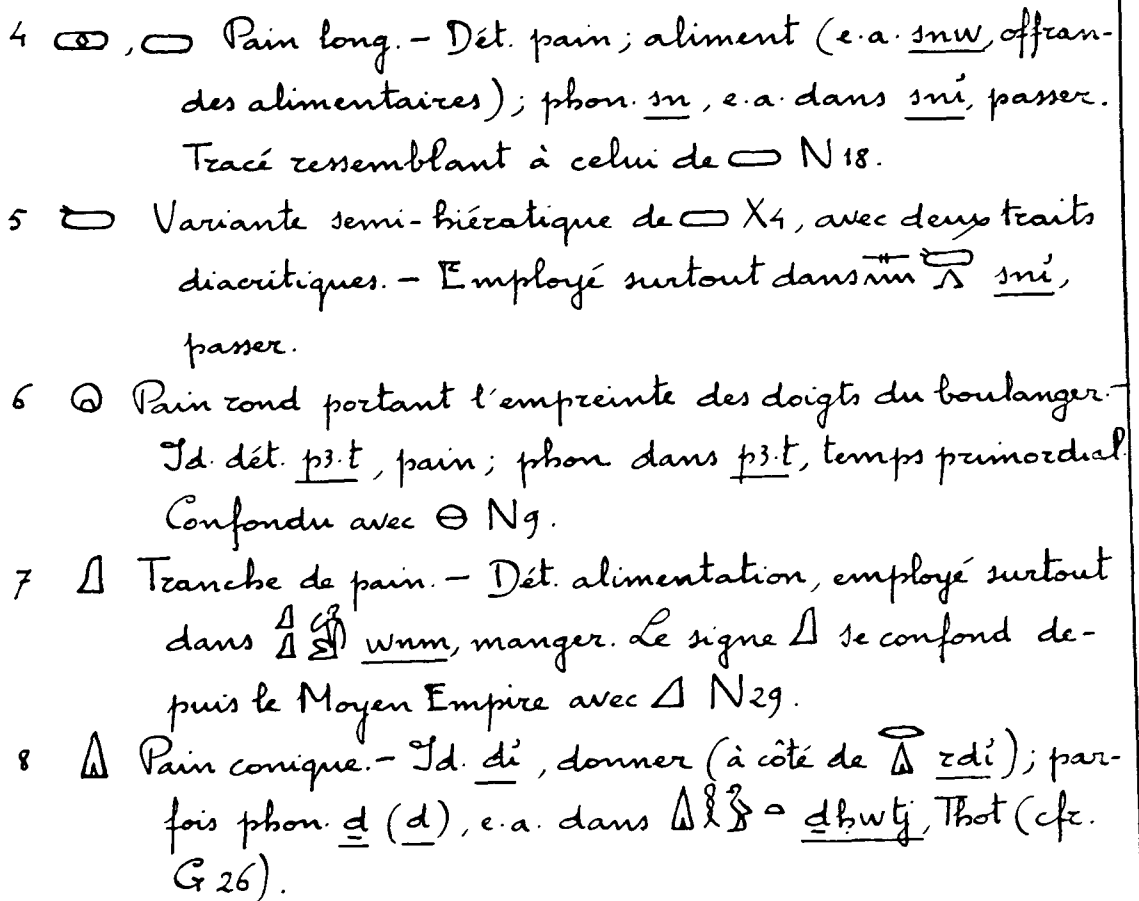 4 𓏒, 𓏓 Pain long. – Dét. pain; aliment (e.a. snw, offran-
des alimentaires); phon. sn, e.a. dans snỉ, passer.
Tracé ressemblant à celui de 𓈀 N 18.
5 𓏔 Variante semi-hiératique de 𓏓 X4, avec deux traits
diacritiques. – Employé surtout dans 𓊃𓈖𓏔𓂻 snỉ,
passer.
6 𓏖 Pain rond portant l'empreinte des doigts du boulanger. –
Id. dét. p3.t, pain; phon. dans p3.t, temps primordial.
Confondu avec 𓇹 N9.
7 𓏘 Tranche de pain. – Dét. alimentation, employé surtout
dans 𓏘𓏘𓀁 wnm, manger. Le signe 𓏘 se confond de-
puis le Moyen Empire avec 𓈎 N29.
8 𓏙 Pain conique. – Id. dỉ, donner (à côté de 𓂋𓏙 rdỉ); par-
fois phon. ḏ (d), e.a. dans 𓏙𓎛𓅱𓏏 ḏḥwtj, Thot (cfr.
G 26).